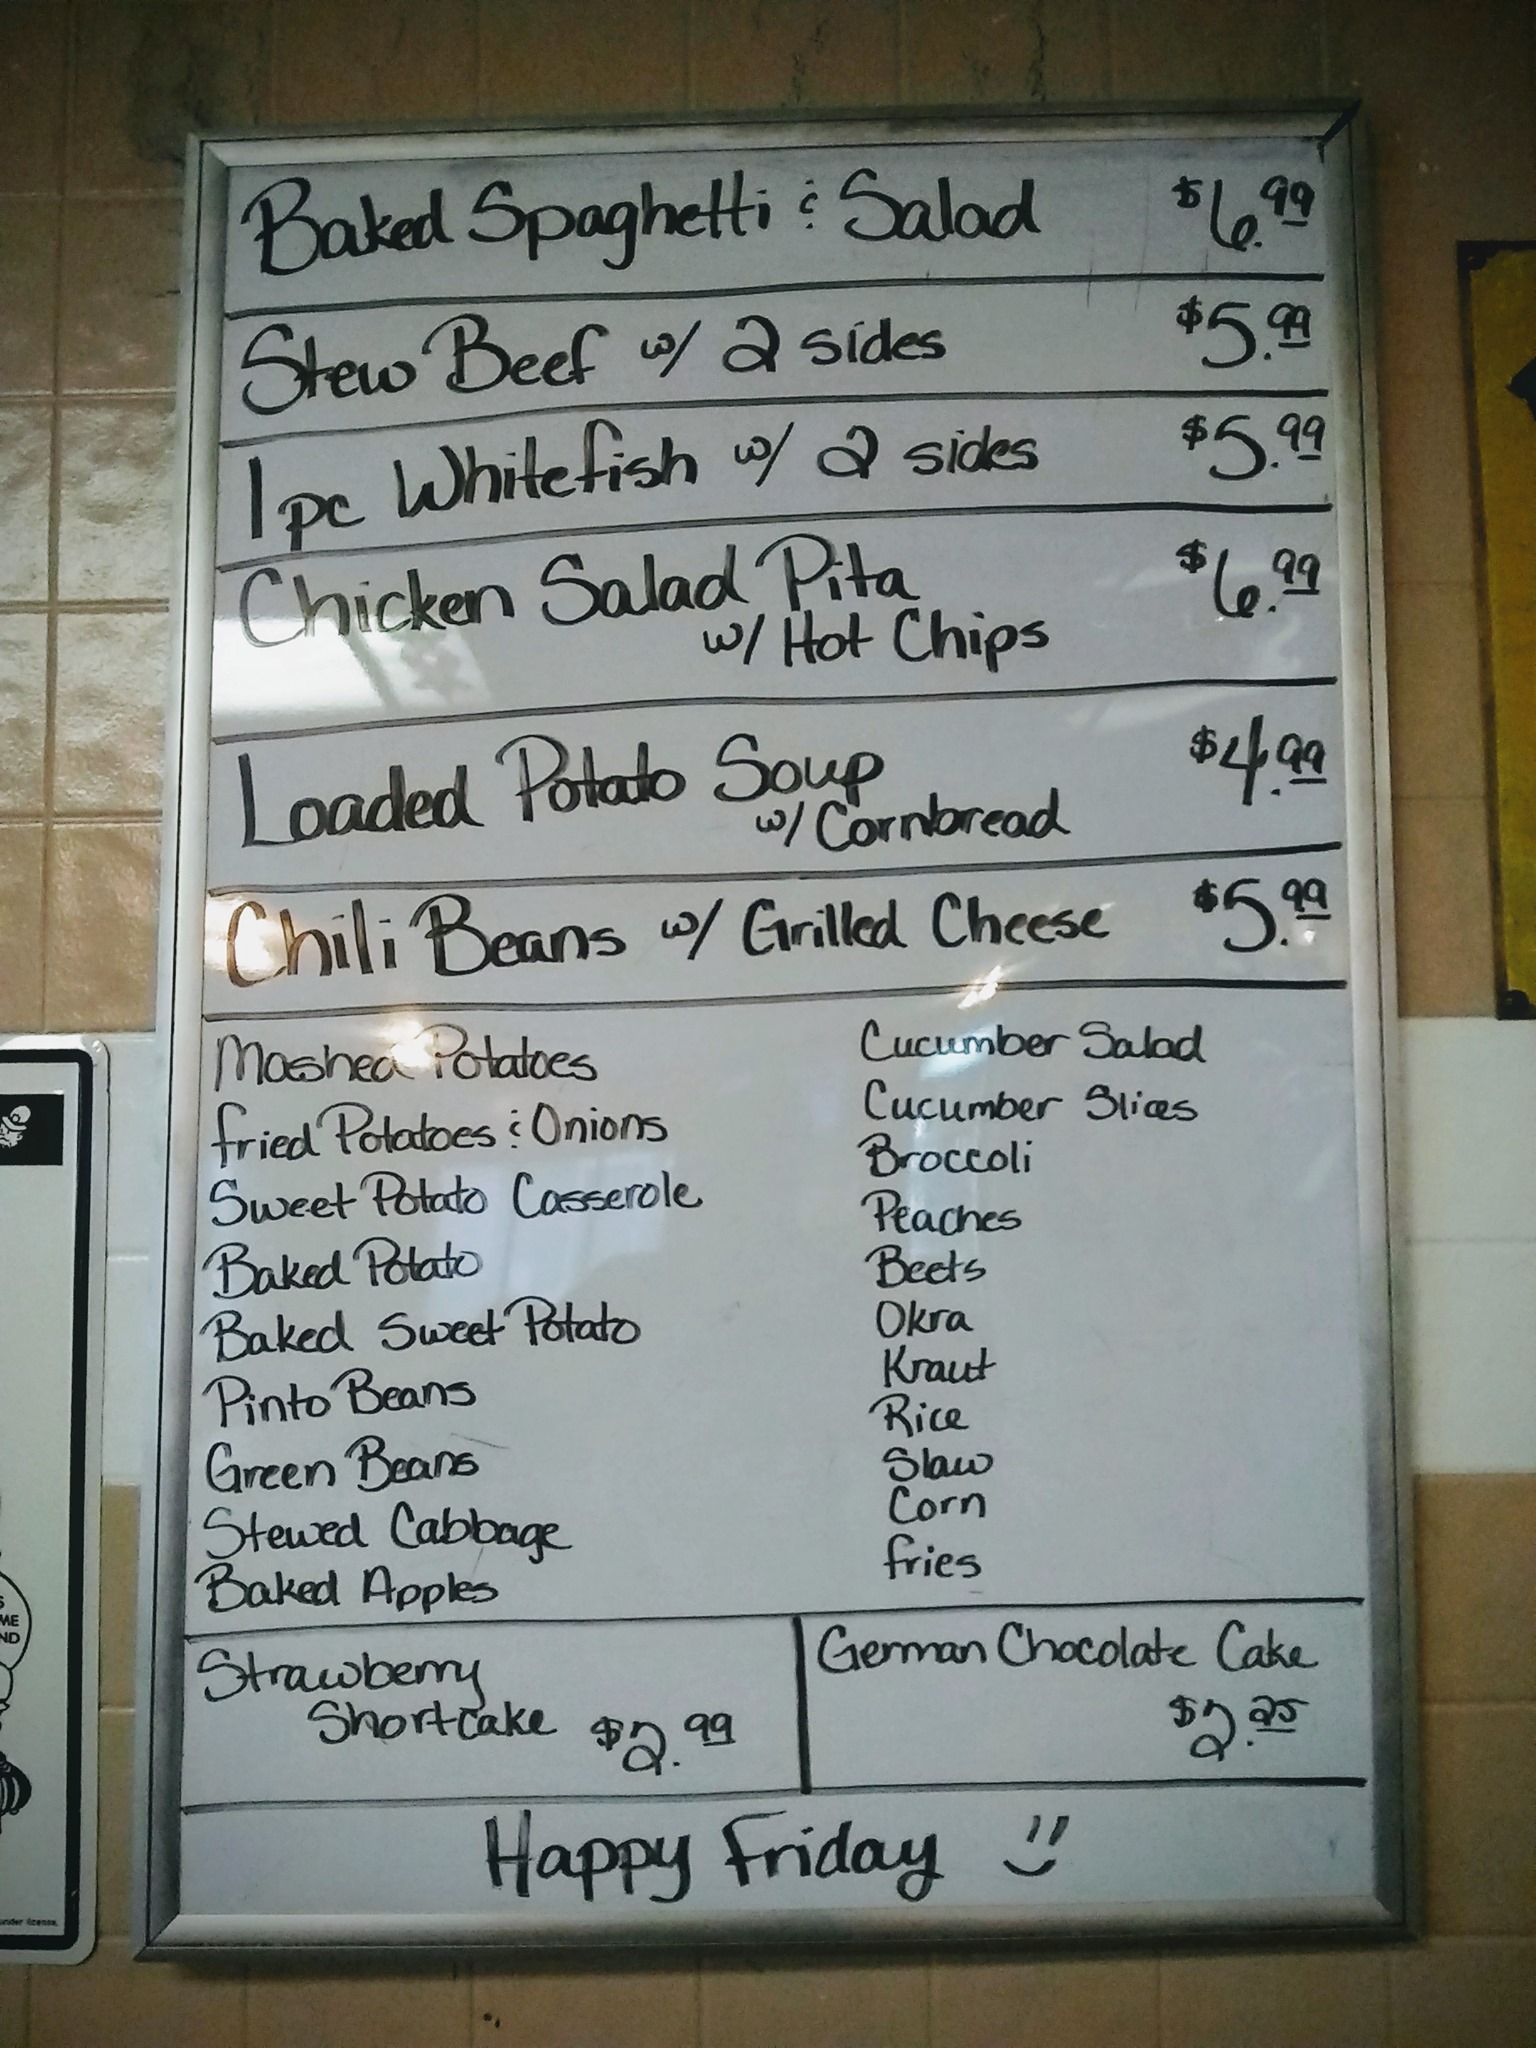 Baked Spaghetti & Salad $6.99
Stew Beef w/ 2 sides $5.99
1pc Whitefish w/ 2 sides $5.99
Chicken Salad Pita $6.99
w/ Hot Chips
Loaded Potato Soup $4.99
w/ Cornbread
Chili Beans w/ Grilled Cheese $5.99
Mashed Potatoes
fried Potatoes & Onions
Sweet Potato Casserole
Baked Potato
Baked Sweet Potato
Pinto Beans
Green Beans
Stewed Cabbage
Baked Apples
Cucumber Salad
Cucumber Slices
Broccoli
Peaches
Beets
Okra
Kraut
Rice
Slaw
Corn
fries
Strawberry
Shortcake $2.99
German Chocolate Cake
$2.25
Happy Friday
under license.